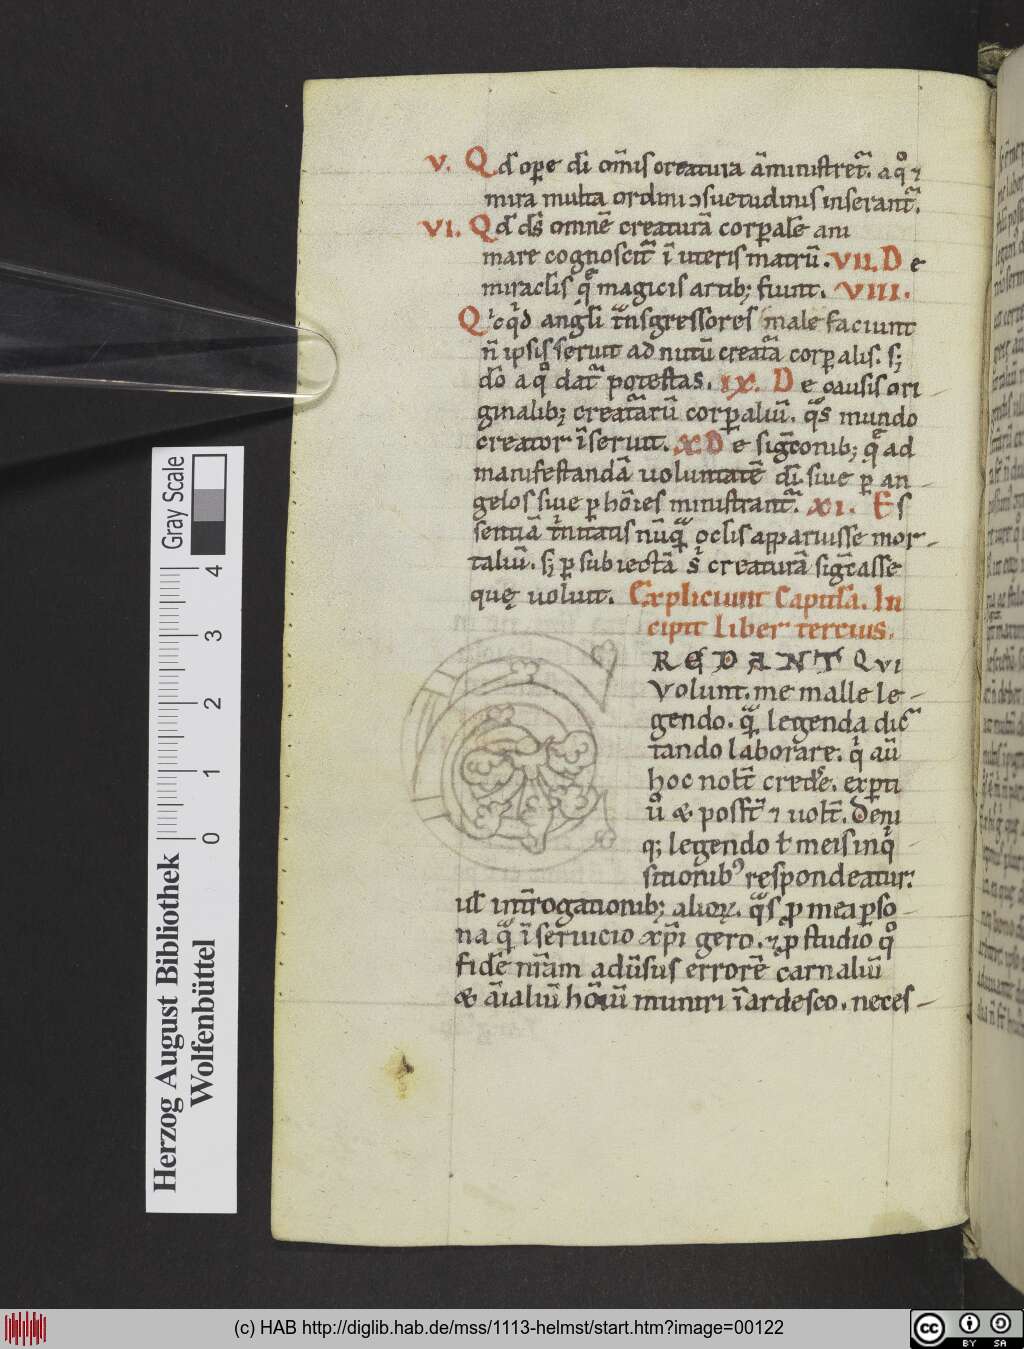 V. Qđ ope dī om̄is creatura am̄inistret᷑. a q̊ ⁊
mira multa ordini ↄsuetudinis inserant᷑.
VI. Qđ ds̄ omnē creaturā corp̲alē ani
mare cognoscit᷑ ī uteris matrū. VII. De
miraclis q̄ magicis artib; fiunt. VIII.
Qͥcq̇d angli t̄nsgressores male faciunt
n̄ ipsis seruit ad nutū creat̄a corp̲alis. s;
dō a q̊ dat᷑ potestas. IX. De causis ori
ginalib; creat̄arū corp̲aliū. qͣs mundo
creator īseruit. X De siḡconib; q̄ ad
manifestandā uoluntatē dī. siue p̲ an
gelos siue p̲ hōies ministrant᷑. XI. Es
sentiā tͥnitatis nūqͣ oclis apparuisse mor
taliū. s; p̲ subiectā s̄ creaturā siḡcasse
quę uoluit. Expliciunt Capitula. In
cipit liber tercius.
REDANT Qvi
Volunt. me malle le
gendo. qͣ legenda dic᷑
tando laborare. qͥ aū
hoc nolt̄ credẻ. exp̲ti
ů & possт̄ ⁊ uolт̄. Deni
q; legendo ł meis inqͥ
sitionib⁹ respondeatur.
uł int̄rogationib; alioꝝ. qͣs ꝓ mea p̲so
na qͣ ī seruicio xp̄i gero. ⁊ ꝓ studio q̊
fidē nr̄am adūsus errorē carnaliū
& aīaliū hōiū muniri īardesco. neces
Herzog August Bibliothek
Wolfenbüttel
Gray Scale
0 1 2 3 4
(c) HAB http://diglib.hab.de/mss/1113-helmst/start.htm?image=00122
cc BY SA